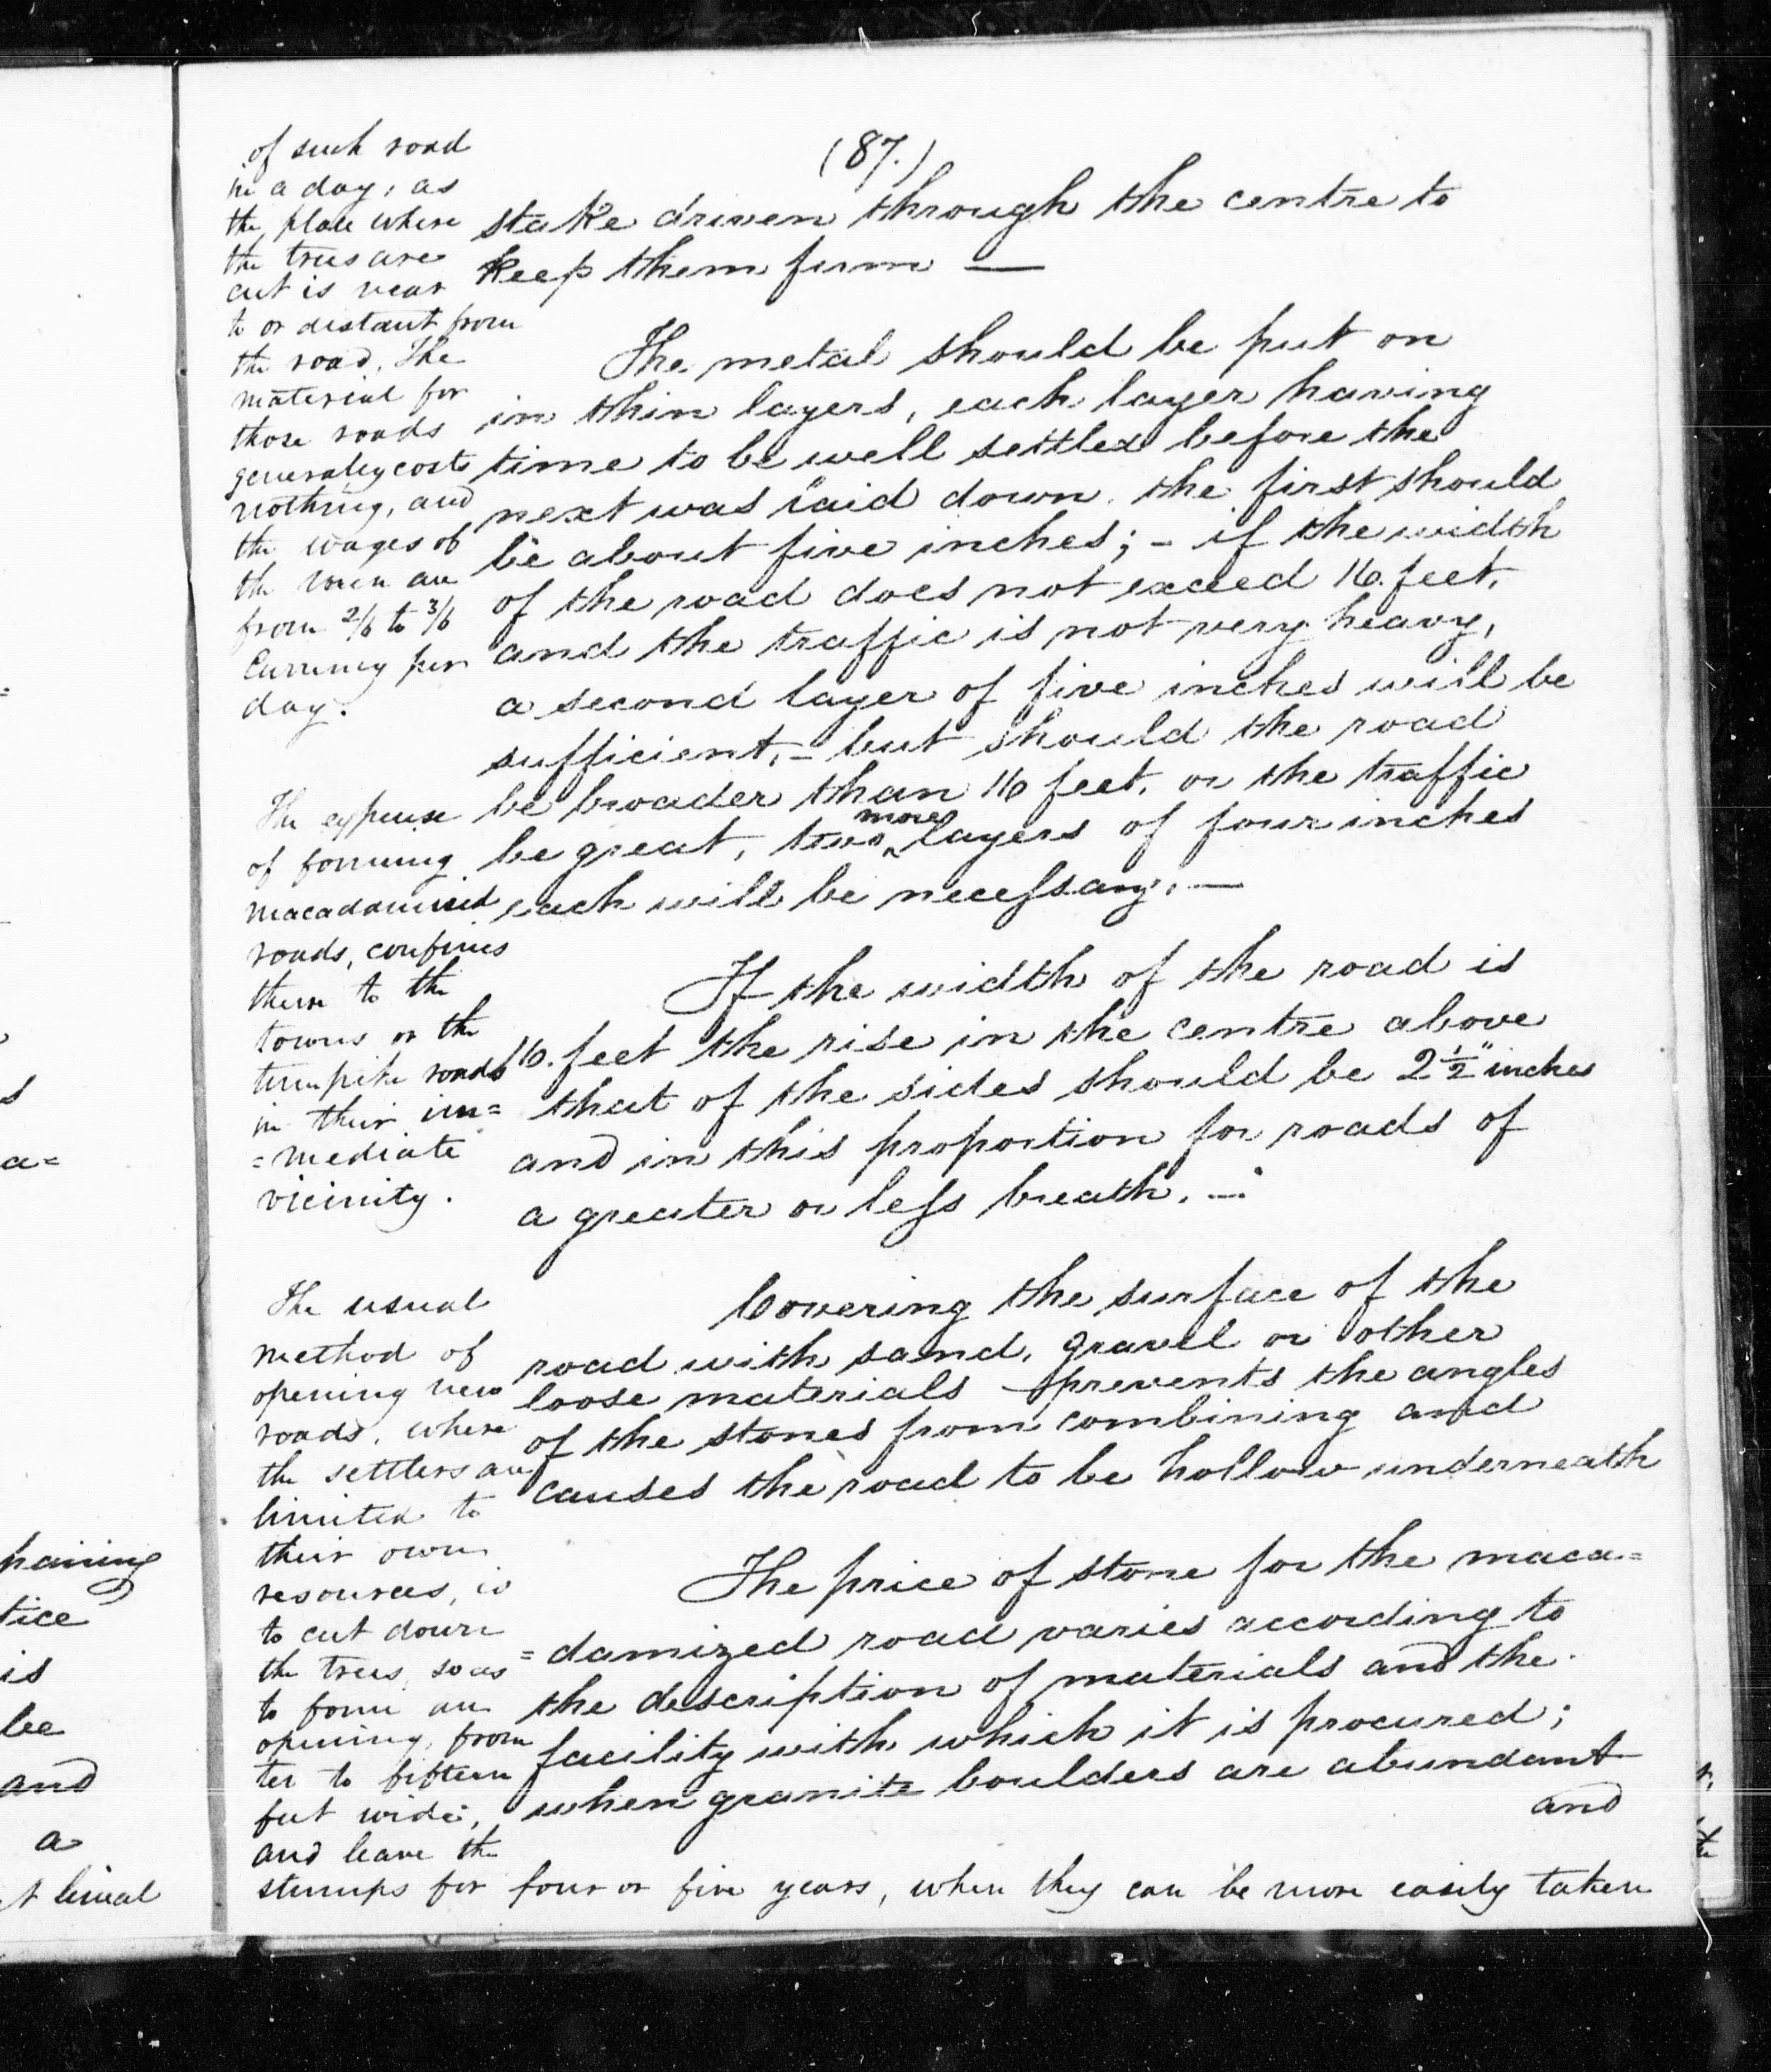 (87.)
of such road
in a day, as
the place where
the trees are
cut is near
to or distant from
the road. The
material for
those roads
generally costs
nothing, and
the wages of
the men are
from 2/6 to 3/6
Currency per
day.
The expense
of forming
macadamised
roads, confines
them to the
towns or the
turnpike roads
in their im=
=mediate
vicinity.
The usual
method of
opening new
roads, where
the settlers are
limited to
their own
resources, is
to cut down
the trees, so as
to form an
opening, from
ten to fifteen
feet wide,
and leave the
stumps for four or five years, when they can be more easily taken
stake driven through the centre to
keep them firm —
The metal should be put on
in thin layers, each layer having
time to be well settled before the
next was laid down. the first should
be about five inches; – if the width
of the road does not exceed 16. feet,
and the traffic is not very heavy,
a second layer of five inches will be
sufficient, – but should the road
be broader than 16 feet, or the traffic
be great, two more layers of four inches
each will be necessary. —
If the width of the road is
16. feet the rise in the centre above
that of the sides should be 2½" inches
and in this proportion for roads of
a greater or less breath. —
Covering the surface of the
road with sand, gravel or other
loose materials prevents the angles
of the stones from combining and
causes the road to be hollow underneath
The price of stone for the maca=
=damized road varies according to
the description of materials and the
facility with which it is procured;
when granite boulders are abundant
and
haining
tice
is
be
and
a
t lineal
s
a=